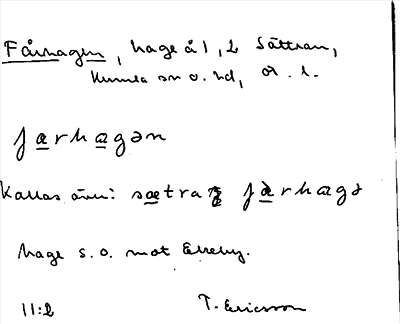 Fårhagen, hage å 1, 2 Sättran,
Kumla sn o. hd, Ör. l.
fa̲rha̲gən
Kallas även: sæ̲tra fà̲rhagə
hage s.o. mot Elreby.
11:2 T. Ericsson